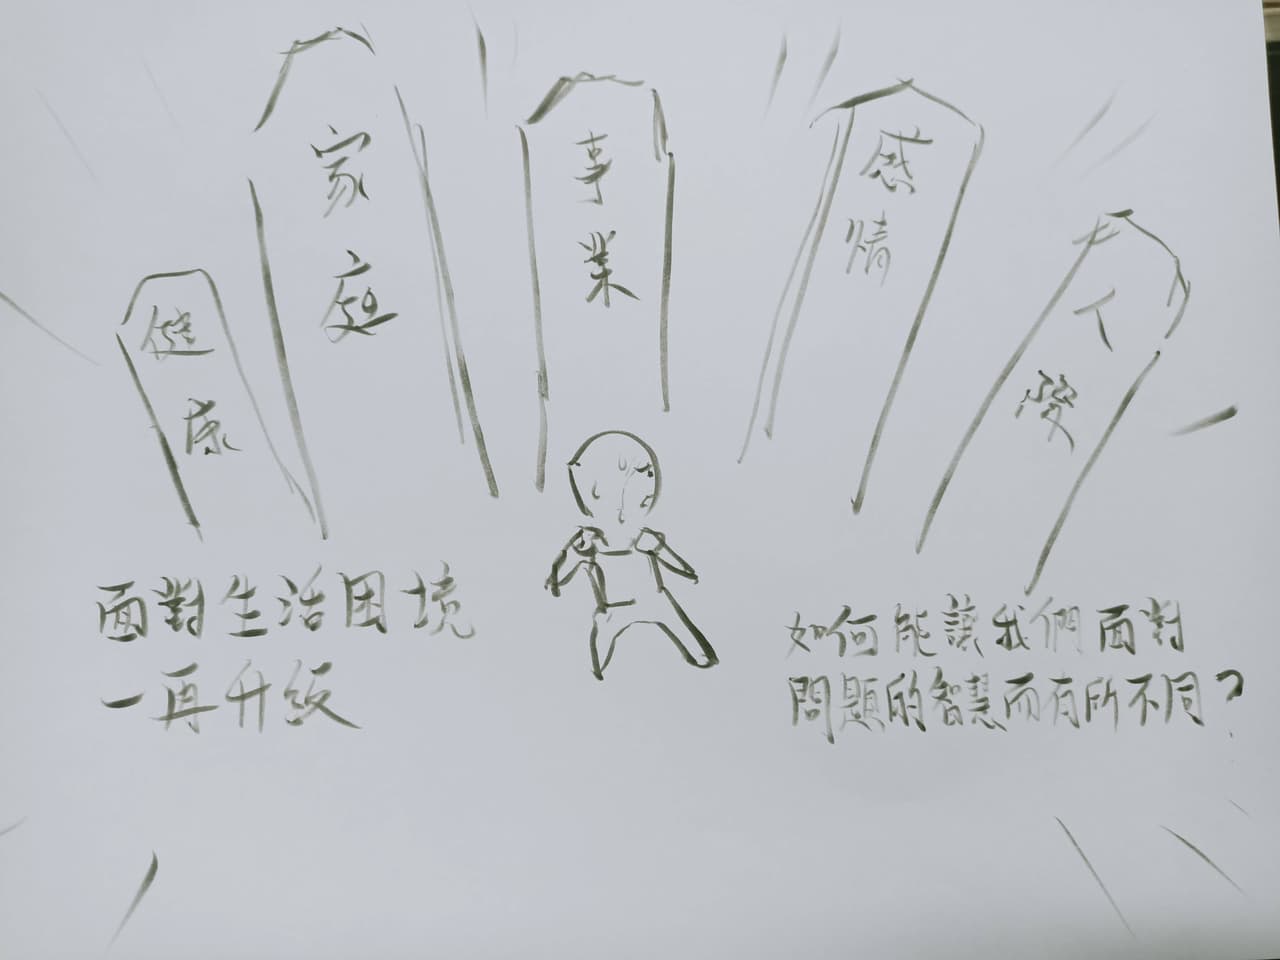 健康
家庭
事業
感情
面對生活困境
一再升級
如何能讓我們面對
問題的智慧而有所不同？